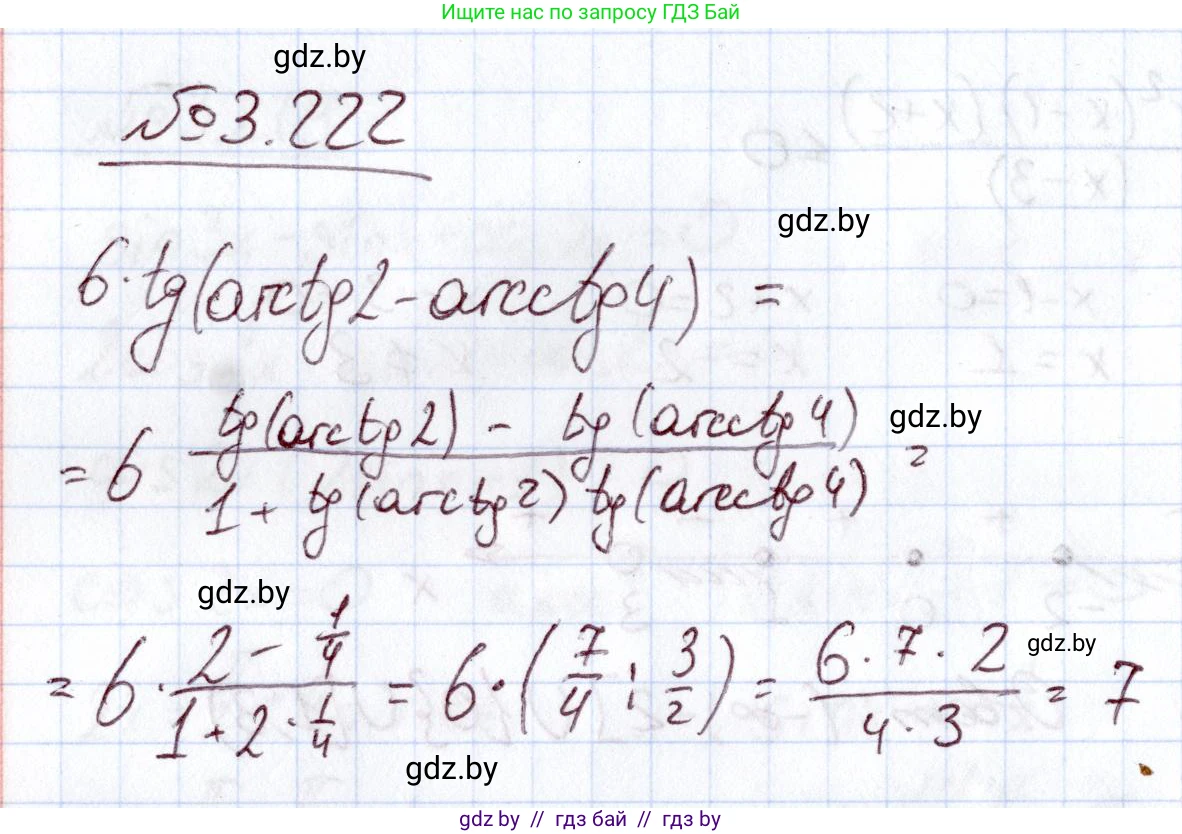 Ищите нас по запросу ГДЗ Бай
gdz.by
№3.222
gdz.by
6·tg(arctg2-arcctg4) =
= 6 (tg(arctg2) - tg(arcctg4)) / (1 + tg(arctg2) tg(arcctg4)) =
gdz.by
gdz.by
= 6 · (2 - 1/4) / (1 + 2 · 1/4) = 6 · (7/4 : 3/2) = (6 · 7 · 2) / (4 · 3) = 7
gdz.by
gdz.by
gdz.by // гдз бай // гдз by